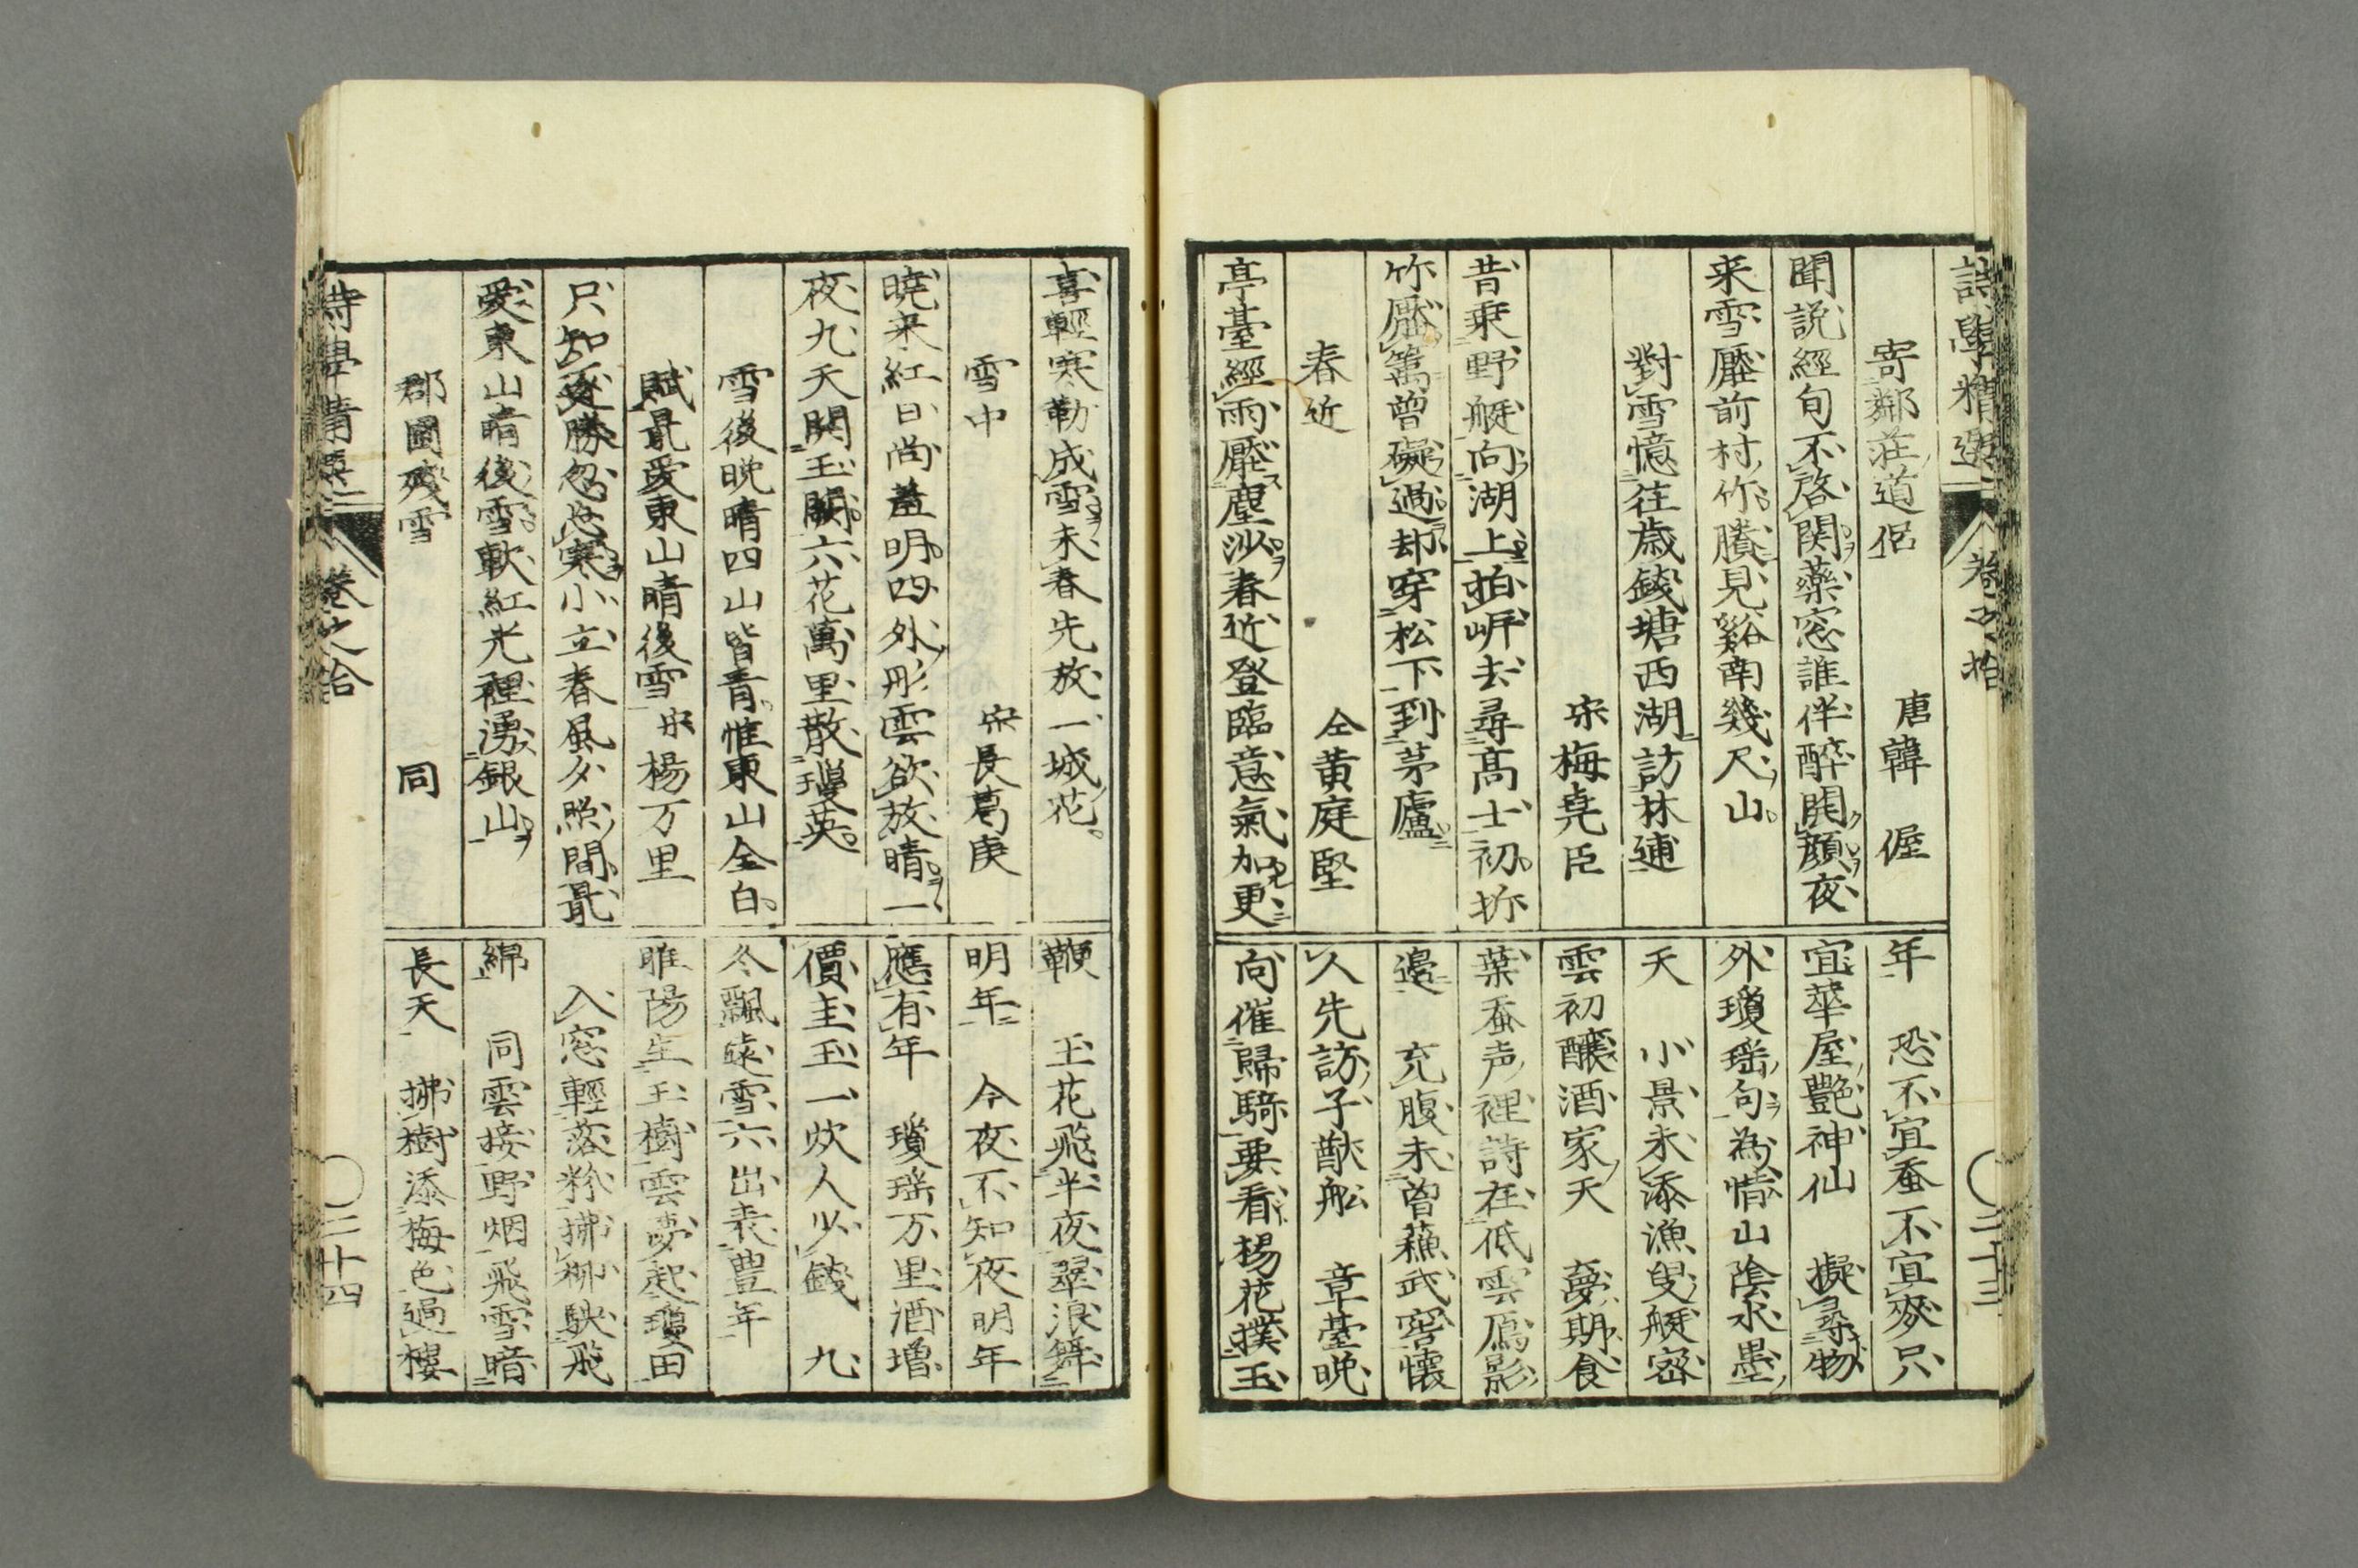 詩學精選 卷之拾 二十三
寄鄰莊道侶 唐韓偓
聞説經旬不啓関藥窓誰伴醉開顔夜
来雪壓前村竹賸見谿南幾尺山
對雪憶往歳錢塘西湖訪林逋
宋梅堯臣
昔乗野艇向湖上拍岍去尋髙士初折
竹壓籬曽礙過却穿松下到茅廬
春近 仝黄庭堅
亭臺經雨壓塵沙春近登臨意氣加更
年 恐不宜蚕不宜麥只
宜華屋艶神仙 擬尋物
外瓊瑶句為惜山陰水墨
天 小景未添漁叟艇宻
雲初釀酒家天 夢期食
葉蚕声裡詩在低雲鴈影
邉 充腹未曽蘓武窖懐
人先訪子猷舩 章臺晩
向催歸騎要看楊花撲玉
喜輕寒勒成雪未春先放一城花
雪中 宋長葛庚
曉来紅日尚羞明四外彤雲欲放晴一
夜九天開玉闕六花萬里散瓊英
雪後晩晴四山皆青惟東山全白
賦最愛東山晴後雪 宋楊万里
只知逐勝忽忘寒小立春風夕照間最
愛東山晴後雪軟紅光裡湧銀山
郡圃殘雪 同
鞭 玉花飛半夜翠浪舞
明年 今夜不知夜明年
應有年 瓊瑶万里酒増
價圭玉一炊人少錢 九
冬飄遠雪六出表豊年
睢陽生玉樹雲夢起瓊田
入窓輕落粉拂柳駃飛
綿 同雲接野烟飛雪暗
長天 拂樹添梅色過樓
詩學精選 卷之拾 二十四